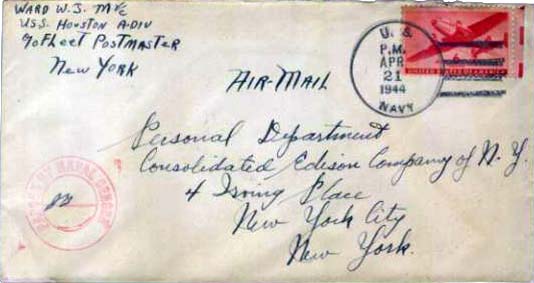 WARD W.J. M1/c
U.S.S. HOUSTON A-DIV
%FLEET POSTMASTER
NEW YORK
AIR-MAIL
U. S.
P.M.
APR
21
1944
NAVY
UNITED STATES OF AMERICA
Personal Department
Consolidated Edison Company of N. Y.
4 Irving Place
New York City
New York.
PASSED BY NAVAL CENSOR